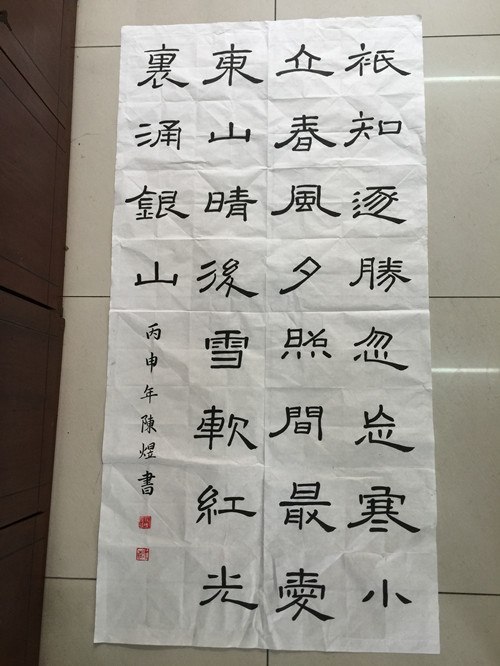 祇知逐勝忽忘寒小
立春風夕照間最愛
東山晴後雪軟紅光
裏涌銀山
丙申年陳煜書